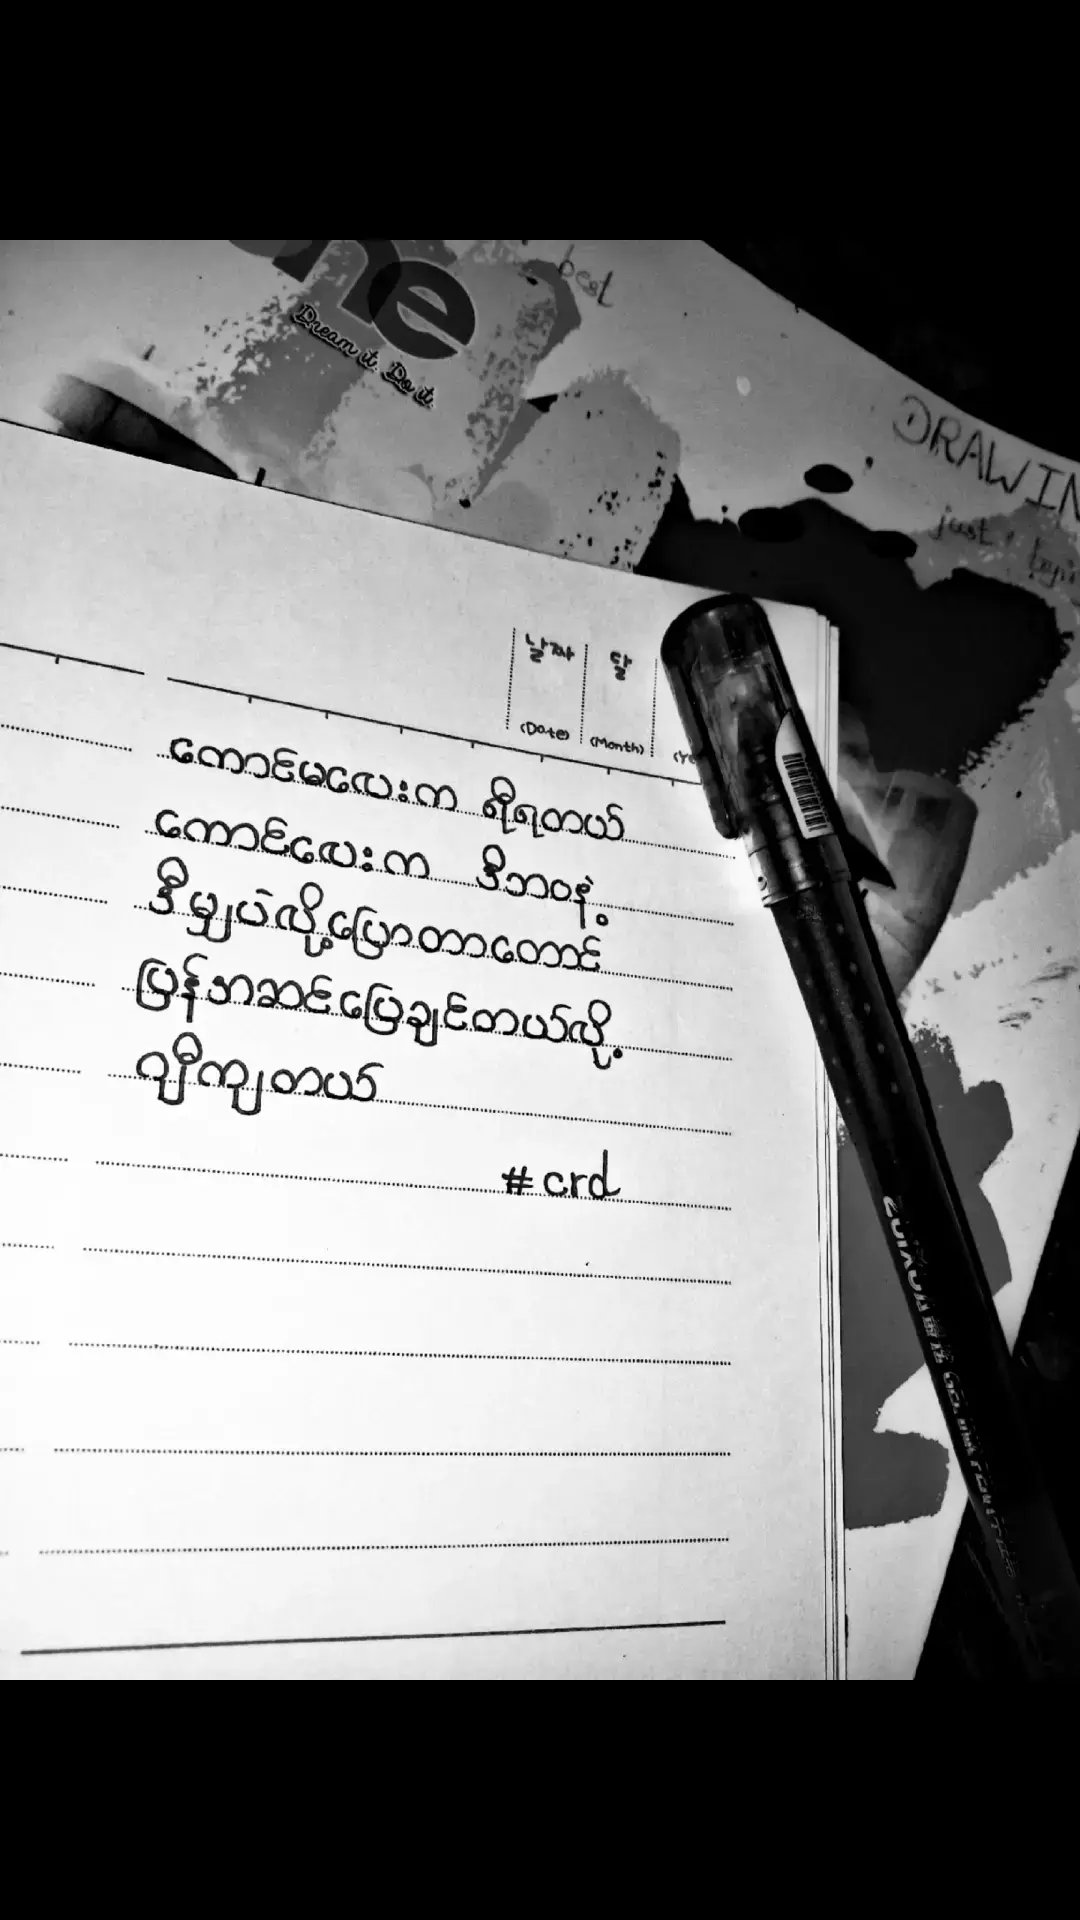 ne
Dream it. Do it.
best
DRAWIN
just
날짜
달
(Date)
(Month)
(Ye
ကောင်မလေးက ရိုရတယ်
ကောင်လေးက ဒီဘဝနဲ့
ဒီမျှပဲလို့ပြောတာတောင်
ပြန်အဆင်ပြေချင်တယ်လို့
ဂျီကျတယ်
#crd